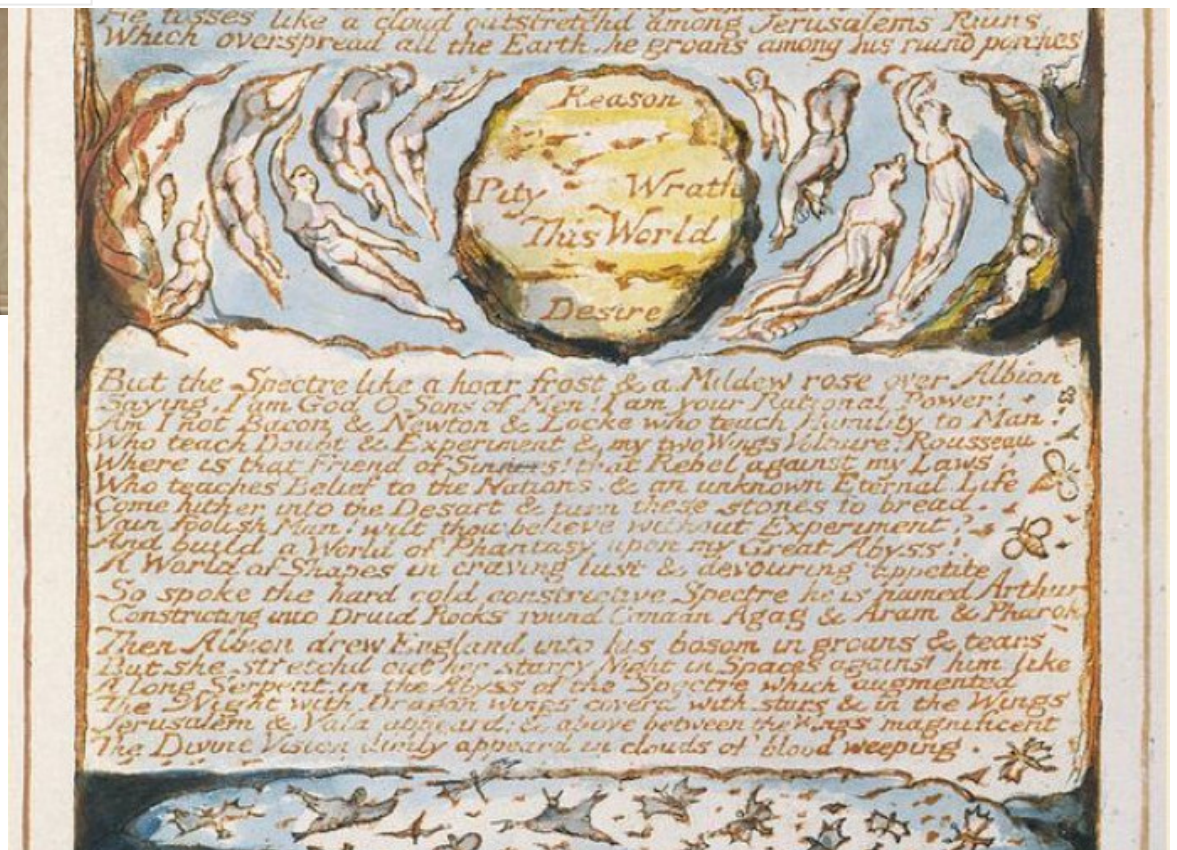 He tosses like a cloud outstretchd among Jerusalems Ruins
Which overspread all the Earth, he groans among his ruind porches
Reason
Pity Wrath
This World
Desire
But the Spectre like a hoar frost & a Mildew rose over Albion
Saying, I am God O Sons of Men! I am your Rational Power!
Am I not Bacon & Newton & Locke who teach Humility to Man!
Who teach Doubt & Experiment & my two Wings Voltaire: Rousseau.
Where is that Friend of Sinners! that Rebel against my Laws!
Who teaches Belief to the Nations, & an unknown Eternal Life
Come hither into the Desart & turn these stones to bread.
Vain foolish Man! wilt thou believe without Experiment?
And build a World of Phantasy upon my Great Abyss!
A World of Shapes in craving lust & devouring appetite
So spoke the hard cold constrictive Spectre he is named Arthur
Constricting into Druid Rocks round Canaan Agag & Aram & Pharoh
Then Albion drew England into his bosom in groans & tears
But she stretchd out her starry Night in Spaces against him. like
A long Serpent, in the Abyss of the Spectre which augmented
The Night with Dragon wings coverd with stars & in the Wings
Jerusalem & Vala appeard: & above between the Wings magnificent
The Divine Vision dimly appeard in clouds of blood weeping.